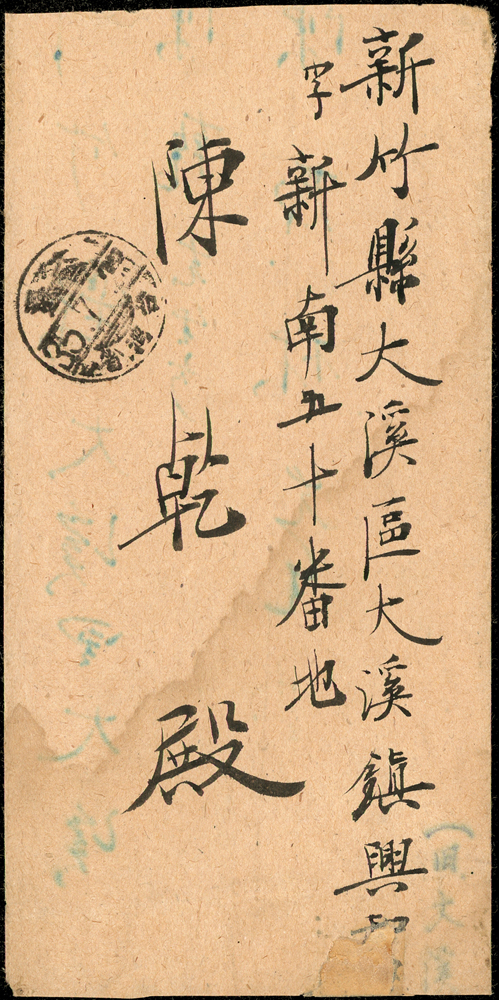 新竹縣大溪區大溪鎮興和
字新南五十番地
陳乾殿
35.7